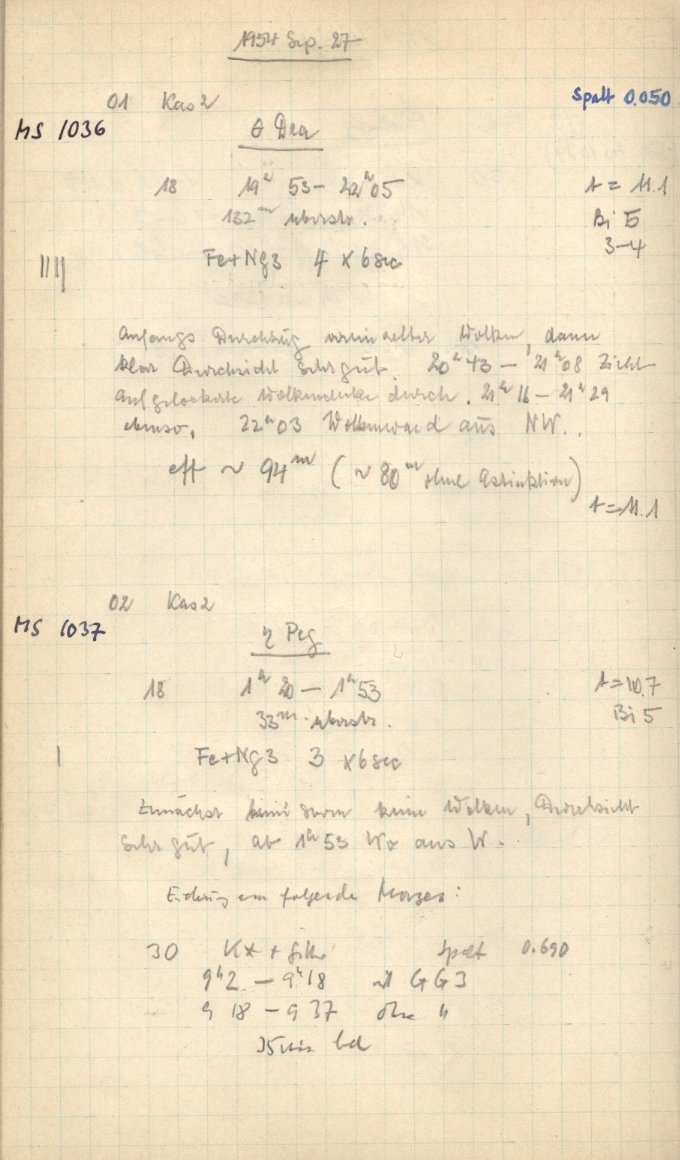 1954 Sep. 27
01 Kas 2 Spalt 0.050
MS 1036 θ Dra
18 19h 53 – 22h 05 t = 11.1
132m überstr. Bi 5
Fe+Ng3 4 x 6 sec 3–4
Anfangs Durchzug vereinzelter Wolken, dann
klar Durchsicht sehr gut. 20h 43 – 21h 08 zieht
aufgelockerte Wolkendecke durch. 21h 16 – 21h 29
ebenso, 22h 03 Wolkenwand aus NW.
eff ~ 94m (~ 80m ohne Extinktion)
t = 11.1
02 Kas 2
MS 1037 η Peg
18 1h 20 – 1h 53 t = 10.7
33m überstr. Bi 5
Fe+Ng3 3 x 6 sec
Zunächst keine Wolken, Durchsicht
sehr gut, ab 1h 53 Wo aus W.
Eichung am folgende Morgen:
30 Spalt 0.690
9h 2 – 9h 18 mit GG3
9 18 – 9 37 ohne "
35 min